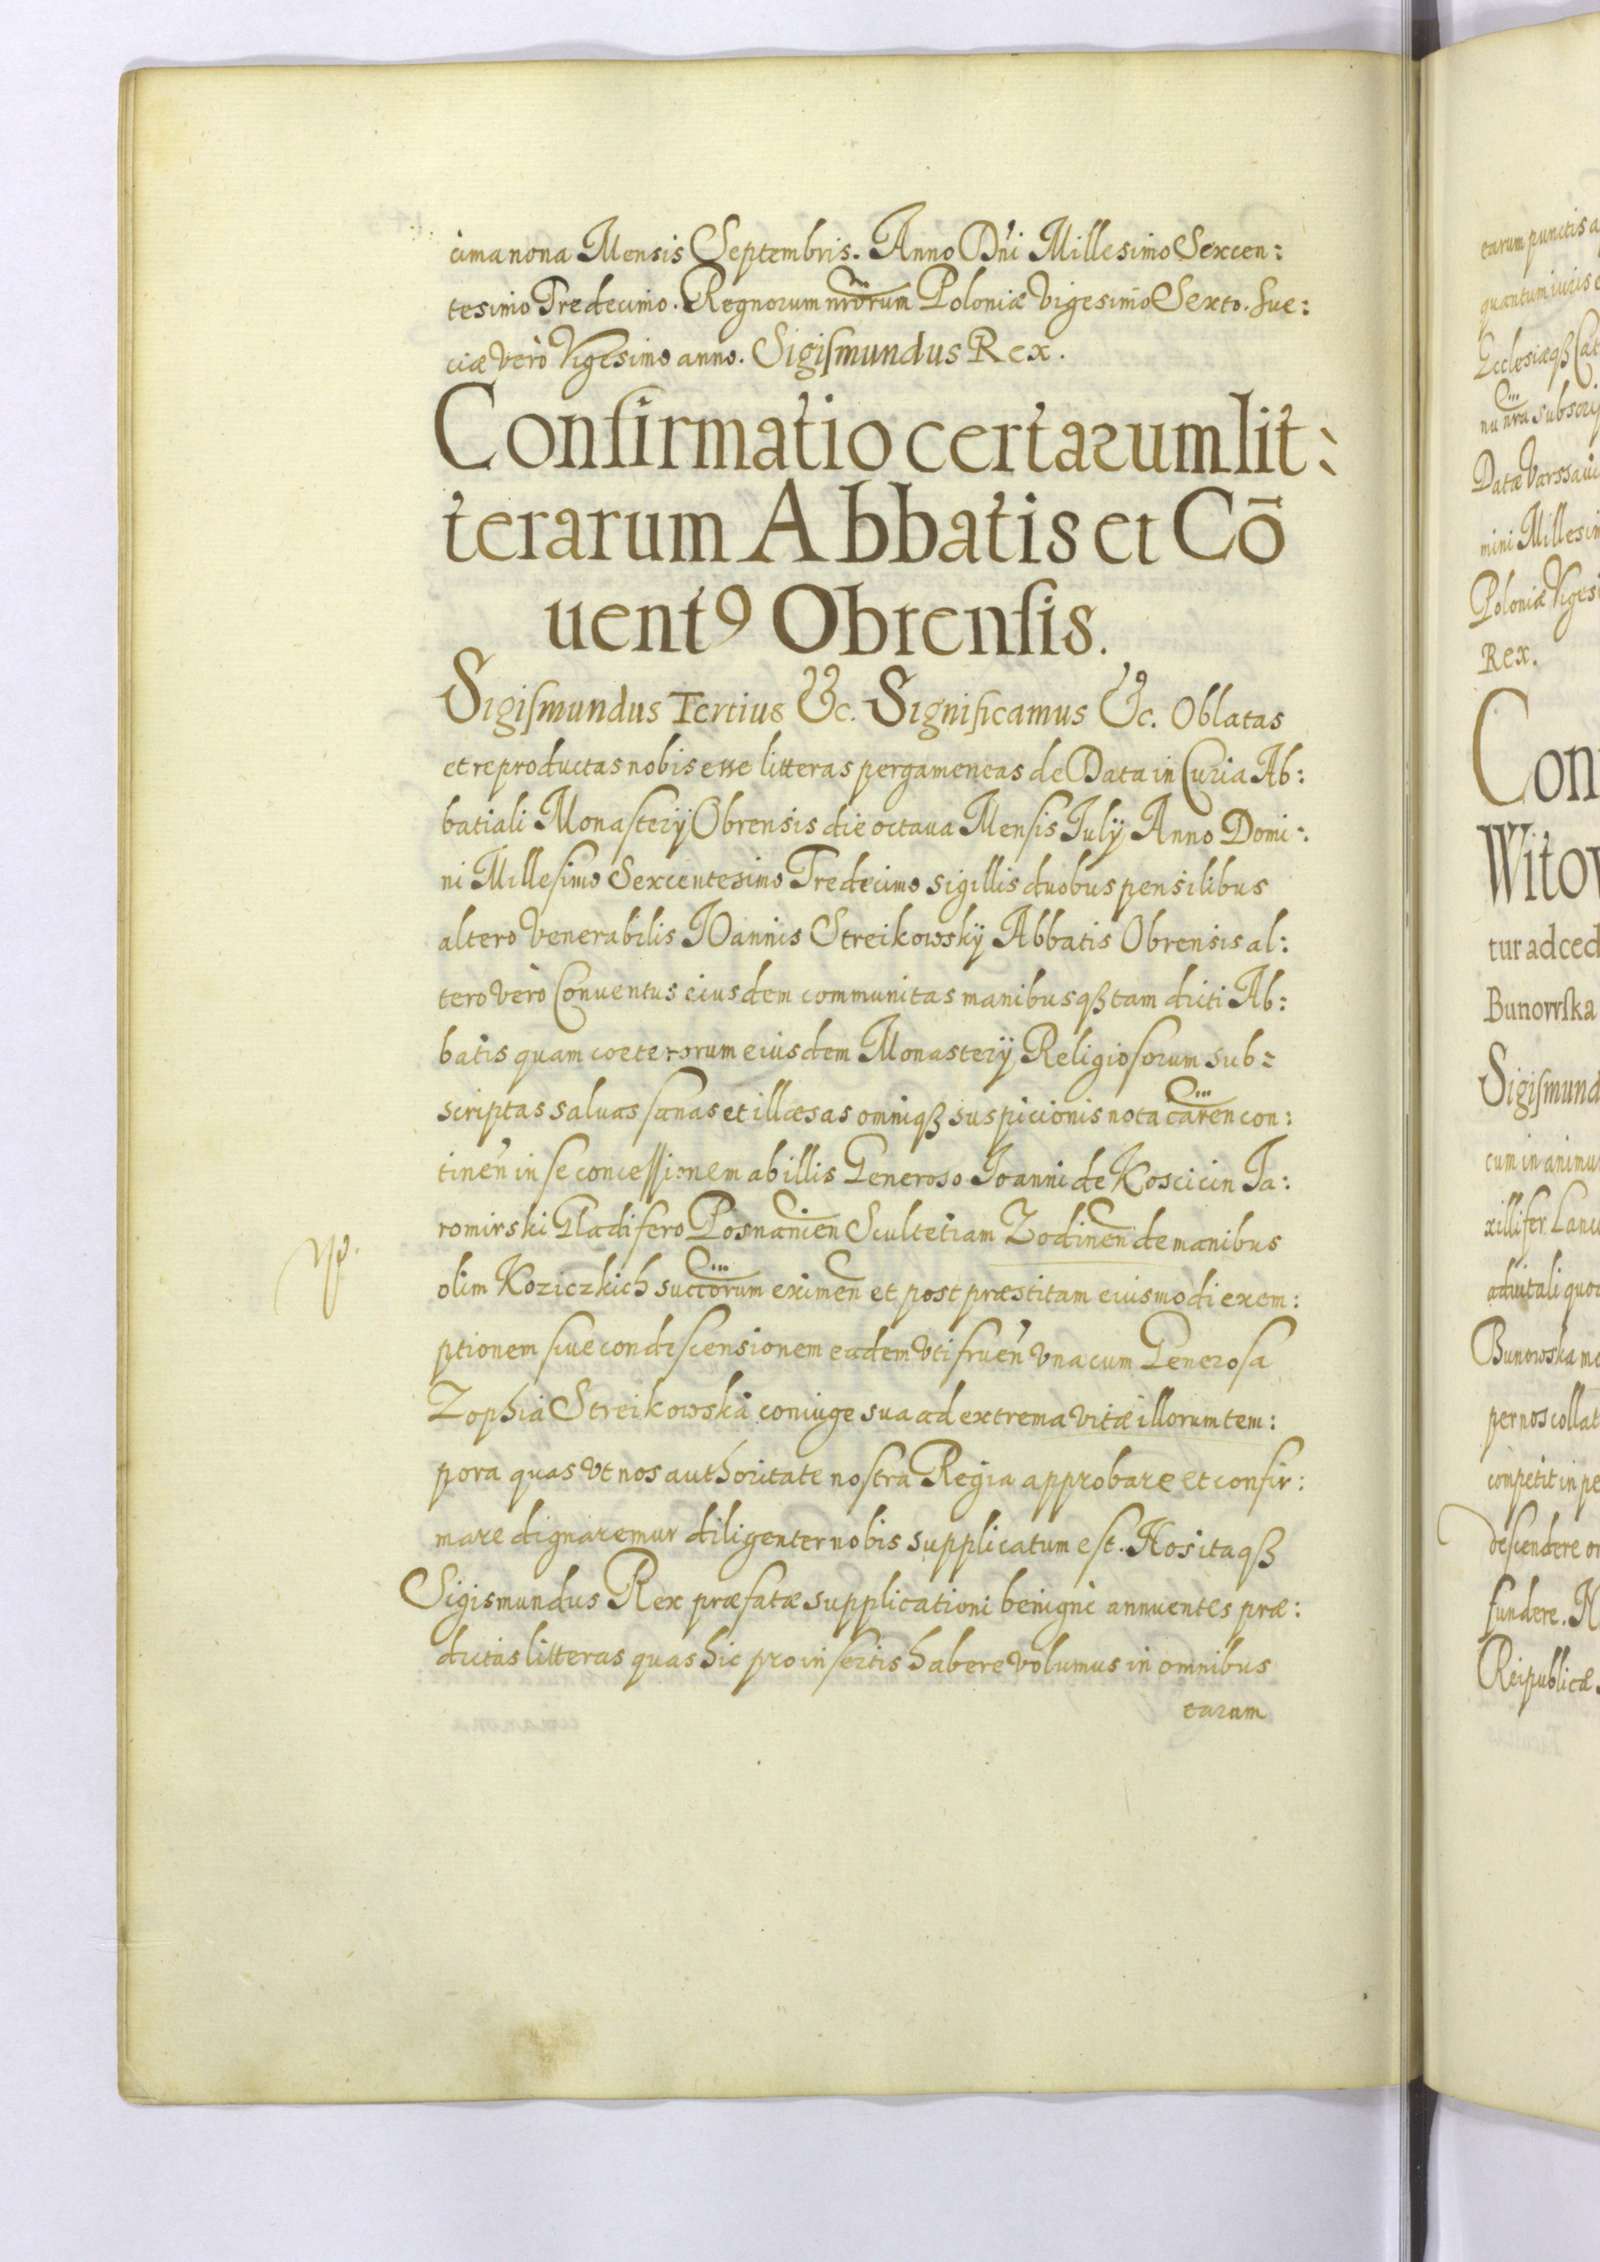 cima nona Mensis Septembris. Anno Dñi Millesimo Sexcen:
tesimo Tredecimo. Regnorum nr̃orum Poloniæ Vigesimo Sexto. Sue:
ciæ vero Vigesimo anno. Sigiſmundus Rex.
Confirmatio certarum lit:
terarum Abbatis et Cō
uentꝰ Obrenſis.
Sigiſmundus Tertius &c. Significamus &c. Oblatas
et reproductas nobis esse litteras pergameneas de Data in Curia Ab:
batiali Monaſterÿ Obrensis die octaua Menſis Julÿ Anno Domi:
ni Milleſimo Sexcentesimo Tredecimo sigillis duobus pensilibus
altero Venerabilis Joannis Streikowskÿ Abbatis Obrensis al:
tero vèro Conuentus eiusdem communitas manibusqꝫ tam dicti Ab:
batis quam coeterorum eiusdem Monasterÿ Religioſorum sub:
scriptas saluas ſanas et illæsas omniqꝫ suspicionis nota careñ con:
tineñ in se conceſſionem ab illis Generoso Joanni de Koscicin Ja:
romirski Gladifero Posnanieñ Scultetiam Zodineñ de manibus
olim Koziczkich succorum eximeñ et post præstitam eiusmodi exem:
ptionem ſiue condeſcensionem eadem vti frueñ vna cum Generosa
Zophia Streikowska coniuge sua ad extrema vitæ illorum tem:
pora quas vt nos authoritate noſtra Regia approbare et confir:
mare dignaremur diligenter nobis supplicatum eſt. Nos itaqꝫ
Sigismundus Rex præfatæ supplicationi benignè annuentes præ:
dictas litteras quas hic pro inſertis habere volumus in omnibus
earum
earum punctis
quantum iuris
Ecclesiæqꝫ Cat
nu nr̃a subscri
Datæ Varssauiæ
mini Millesim
Poloniæ Vigesi
Rex.
Con
Witow
tur ad ced
Bunowſka
Sigiſmund
cum in animu
xillifer Lanc
aduitali quod
Bunowska
per nos collat
competit in pe
deſcendere
fundere. N
Reipublicæ